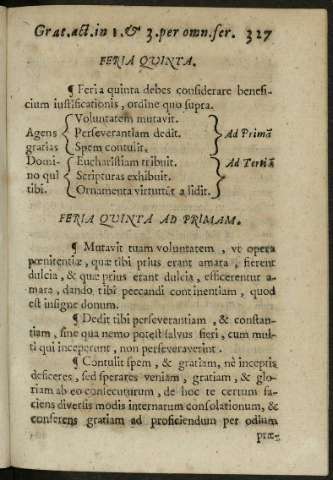 Grat. act. in 1. & 3. per omn. fer. 327
FERIA QUINTA.
¶ Feria quinta debes considerare benefi-
cium iustificationis, ordine quo supra.
Agens
gratias
Domi-
no qui
tibi.
Voluntatem mutavit.
Perseverantiam dedit.
Spem contulit.
Ad Primã
Eucharistiam tribuit.
Scripturas exhibuit.
Ornamenta virtutũ addidit.
Ad Tertiã
FERIA QUINTA AD PRIMAM.
¶ Mutavit tuam voluntatem, ut opera
pœnitentiæ, quæ tibi prius erant amara, fierent
dulcia, & quæ prius erant dulcia, efficerentur a-
mara, dando tibi peccandi continentiam, quod
est insigne donum.
¶ Dedit tibi perseverantiam, & constan-
tiam, sine qua nemo potest salvus fieri, cum mul-
ti qui inceperunt, non perseveraverint.
¶ Contulit spem, & gratiam, nè inceptis
deficeres, sed sperares veniam, gratiam, & glo-
riam ab eo consecuturum, de hoc te certum fa-
ciens diversis modis internarum consolationum, &
conferens gratiam ad proficiendum per odium
præ-